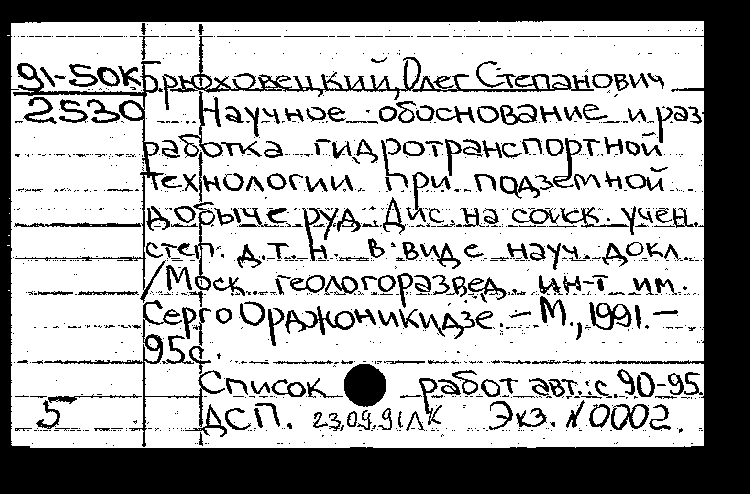 91-50К Брюховецкий, Олег Степанович
2530 Научное обоснование и раз-
работка гидротранспортной
технологии при подземной
добыче руд : Дис. на соиск. учен.
степ. д.т.н. в виде науч. докл.
/Моск. геологоразвед. ин-т им.
Серго Орджоникидзе. – М., 1991. –
95с.
Список работ авт.: с. 90-95.
5 ДСП. 23.09.91 ЛК Экз. N 0002.